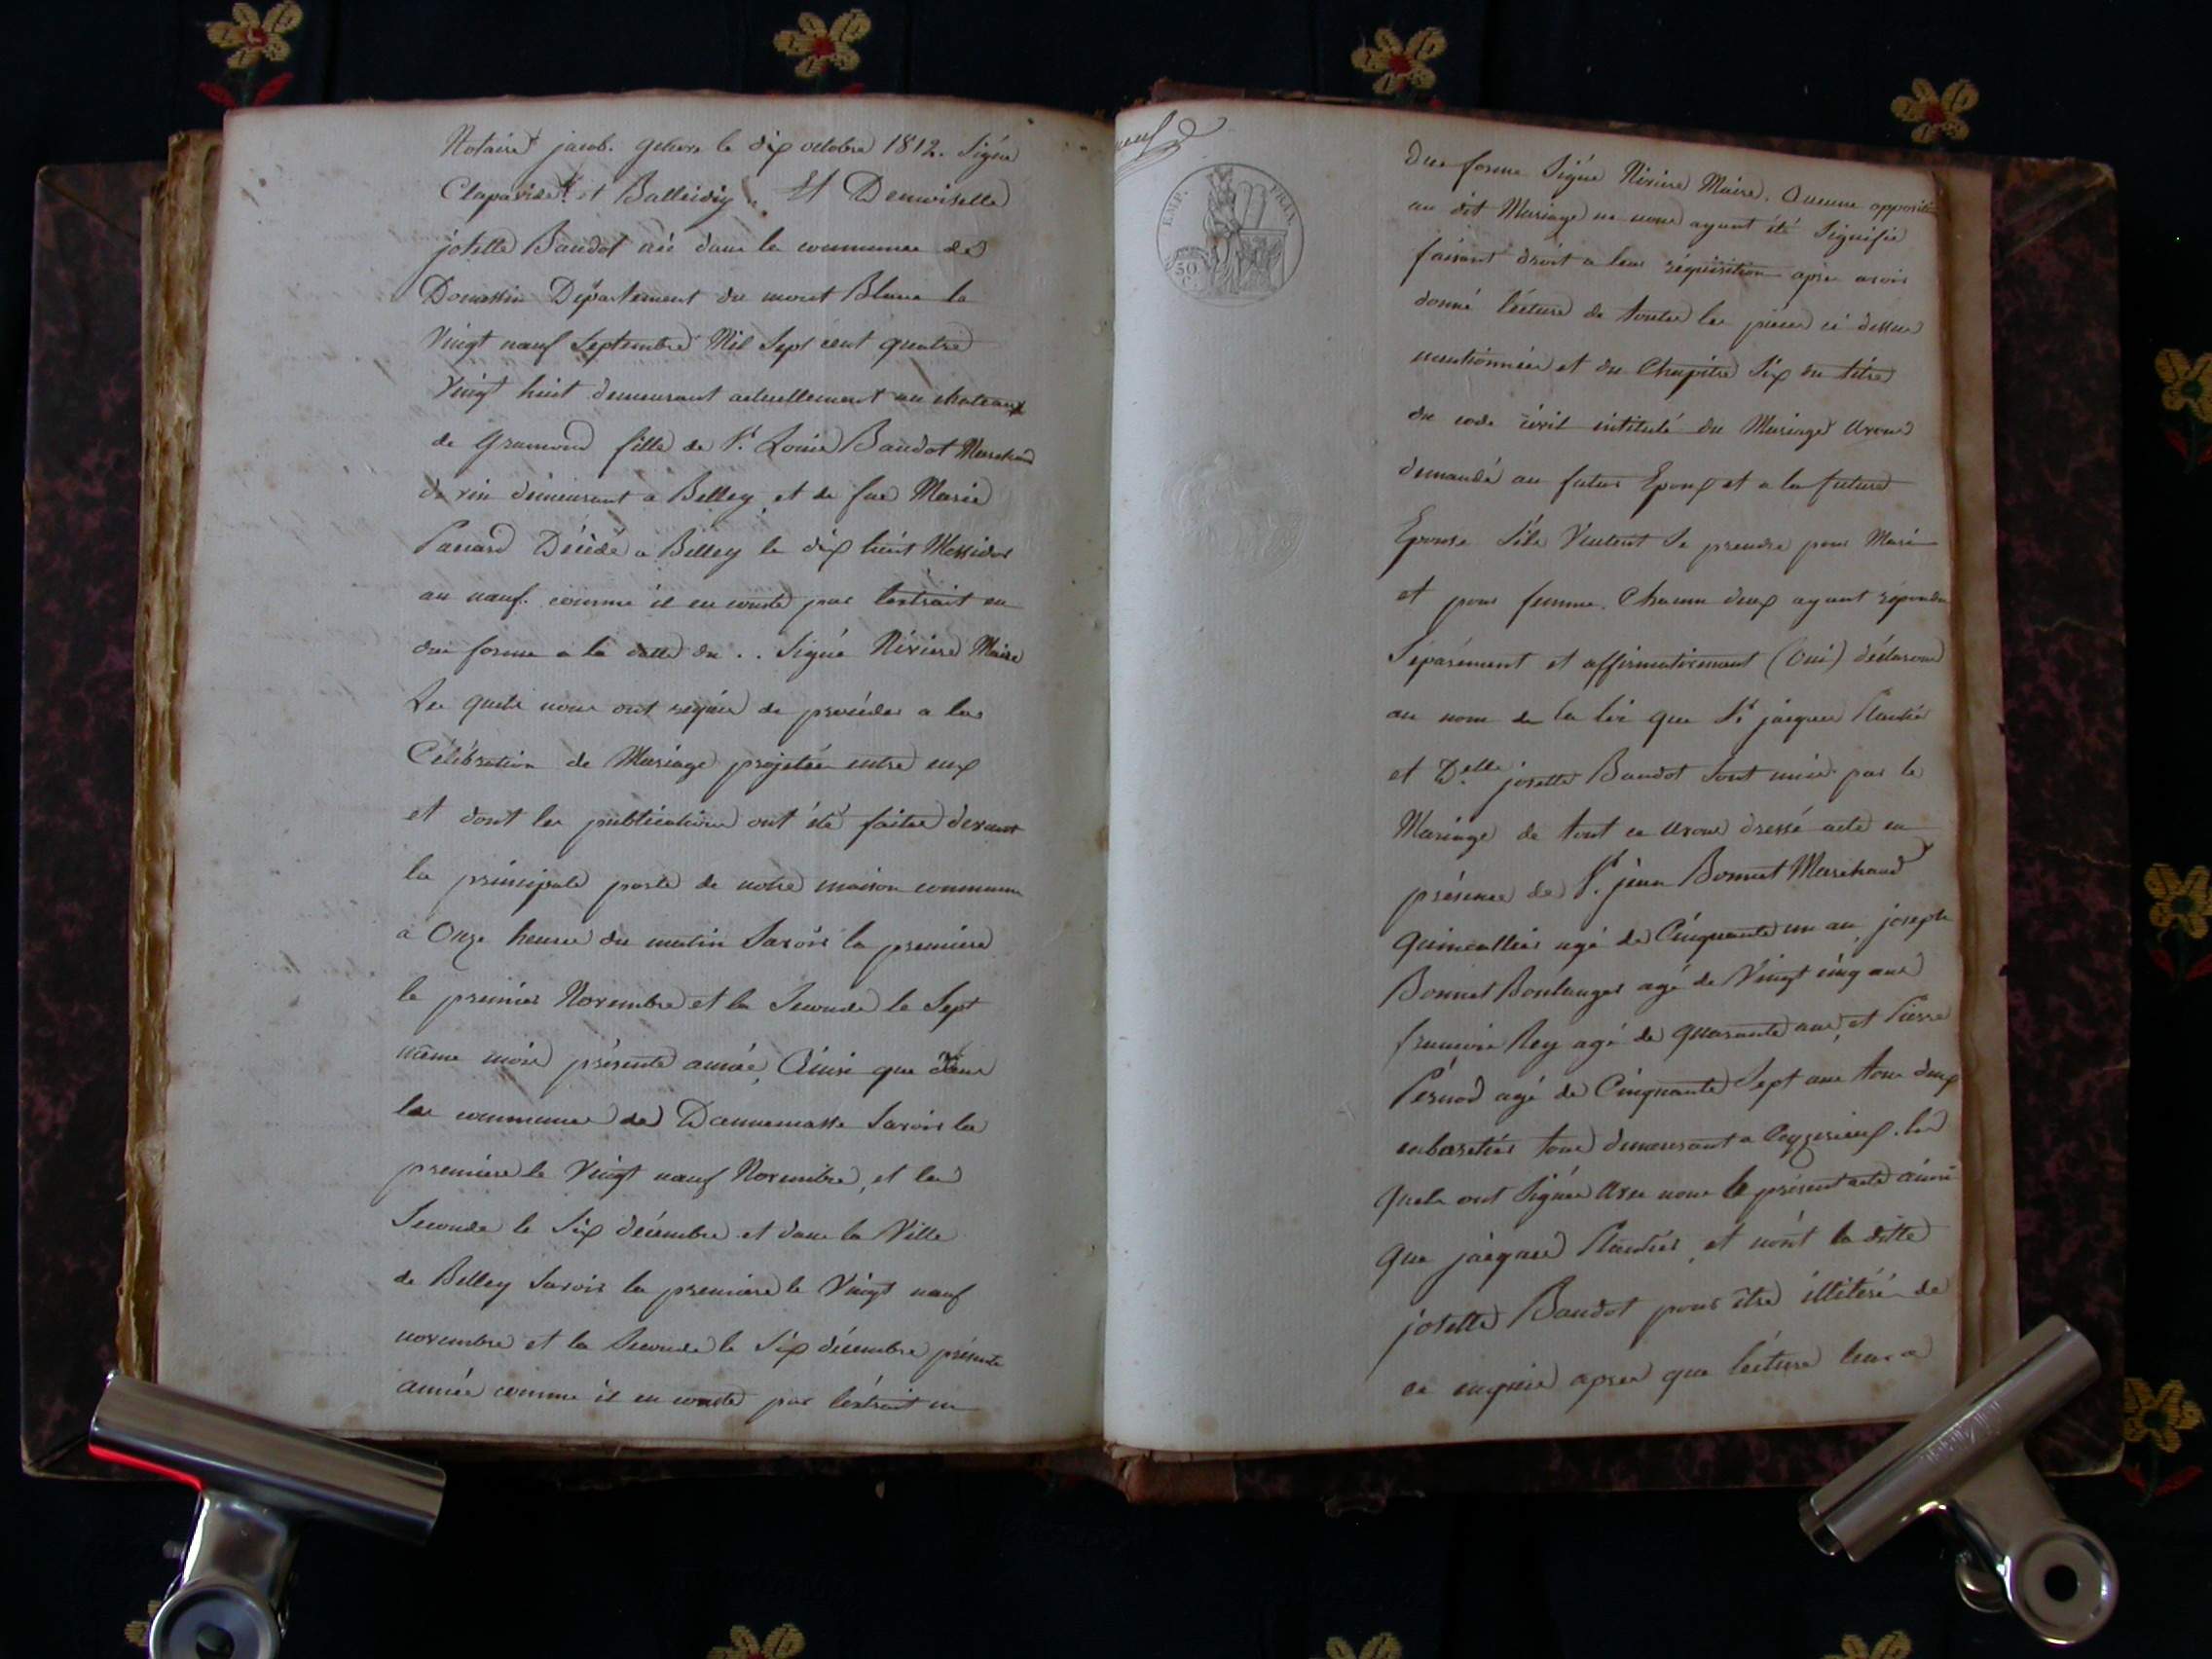 Notaire jacob. geheve le dix octobre 1812. Signé
Claparède et Balleidig. Et Demoiselle
josette Baudot née dans la commune de
Domessin Département du mont Blanc le
Vingt neuf Septembre Mil Sept cent quatre
Vingt huit demeurant actuellement au chateaux
de Gramond fille de Sr. Louis Baudot Marchand
de vin demeurant a Belley, et de fue Marie
Panard Décédé a Belley le dix huit Messidor
an neuf. comme il en conste par lextrait en
due forme a la datte du .. Signé Rivière Maire
Les quels nous ont requis de procéder a la
Célébration de Mariage projetée entre eux
et dont les publications ont été faites devant
la principale porte de notre maison commune
a Onze heures du matin Savoir la premiere
le premier Novembre et la Seconde le Sept
même mois présente année, Ainsi que dans
la commune de Dannemasse Savoir la
premiere le Vingt neuf Novembre, et la
Seconde le Six décembre et dans la Ville
de Belley Savoir la premiere le Vingt neuf
novembre et la Seconde le Six décembre présente
année comme il en conste par lextrait en
EMP. FRAN.
50 C.
due forme Signé Rivière Maire. Aucune opposition
au dit Mariage ne nous ayant été Signifié
faisant droit a leur réquisition apres avoir
donné lécture de toutes les pieces ci dessus
mentionnées et du Chapitre Six du titre
du code civil intitulé du Mariage Avons
demandé au futur Epoux et a la future
Epouse S'ils Veulent Se prendre pour Mari
et pour femme. Chacun deux ayant répondu
Séparément et affirmativement (Oui) déclarons
au nom de la loi que Sr. jacques Plantier
et Delle josette Baudot Sont unis par le
Mariage de tout ce Avons dressé acte en
présence de Sr. jean Bonnet Marchand
Quincallier agé de Cinquante un an joseph
Bonnet Boulanger agé de Vingt cinq ans
francois Rey agé de quarante ans, et Pierre
Pernod agé de Cinquante Sept ans tous deux
cabaretier tous demeurant a Ceyzerieux. les
quels ont Signés Avec nous le présent acte ainsi
que jacques Plantier, et nont la ditte
josette Baudot pour être illitérée de
ce enquise apres que lécture leur a